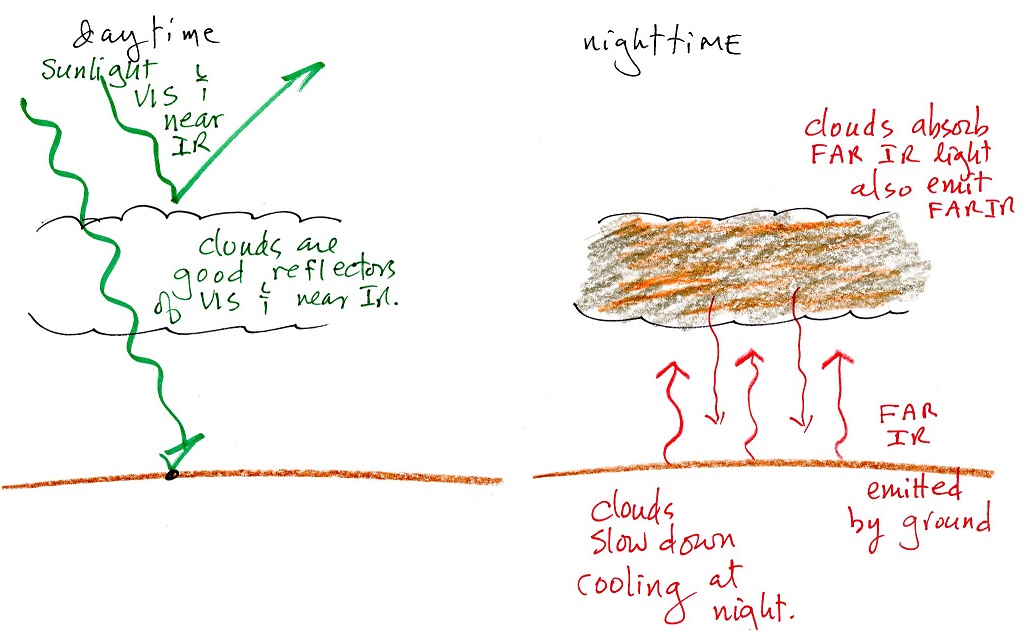 daytime
Sunlight &
VIS
near
IR
clouds are
good reflectors
of VIS & near IR.
nighttIME
clouds absorb
FAR IR light
also emit
FAR IR
FAR
IR
emitted
by ground
clouds
slow down
cooling at
night.